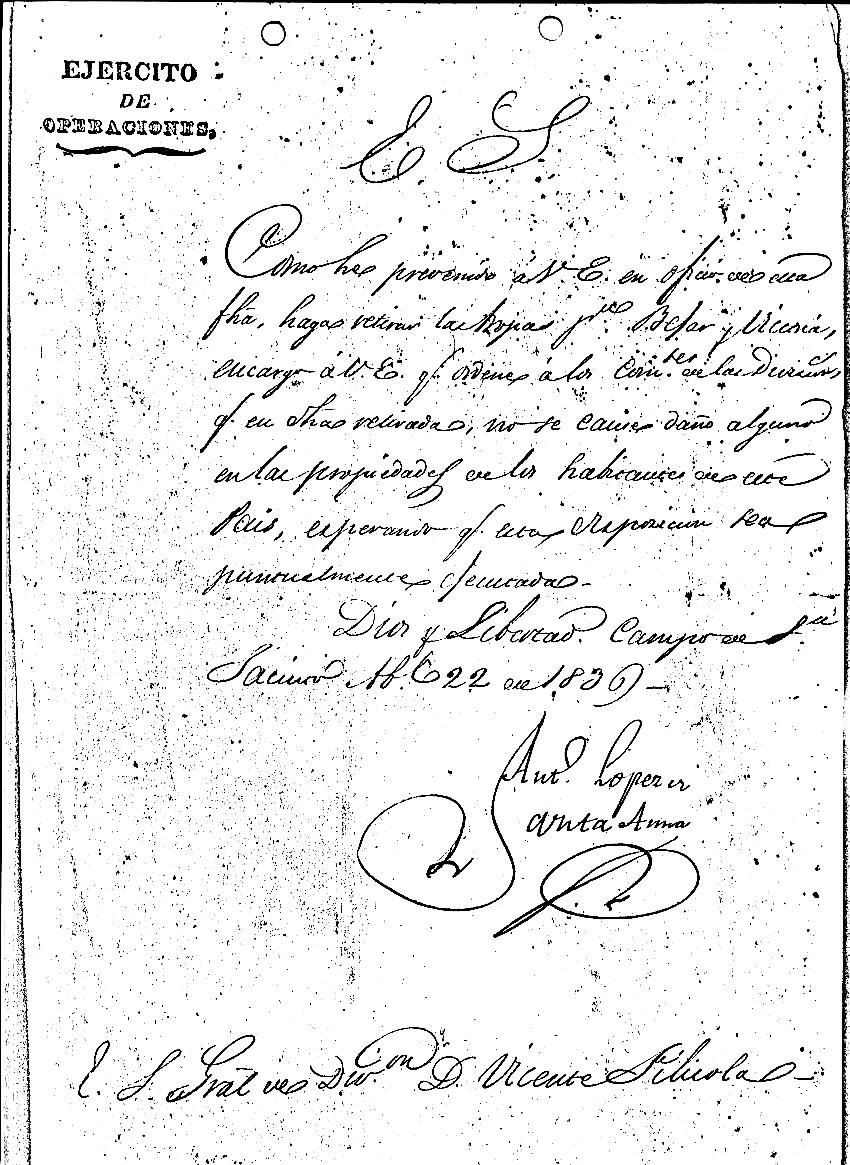 EJERCITO
DE
OPERACIONES,
E S
Como he prevenido á V. E. en oficio de esta
fha, haga retirar las tropas pa Bejar y Victoria,
encargo á V. E. q. ordene á los Comtes de las Divisions,
q. en dha retirada, no se cause daño alguno
en las propiedades de los habitantes de este
Pais, esperando q. esta disposicion sea
puntualmente ejecutada
Dios y Libertad. Campo de Sn
Jacinto Ab.l 22 de 1836
Ant.o Lopez de
Santa Anna
E. S. Gral de Div.on D. Vicente Filisola